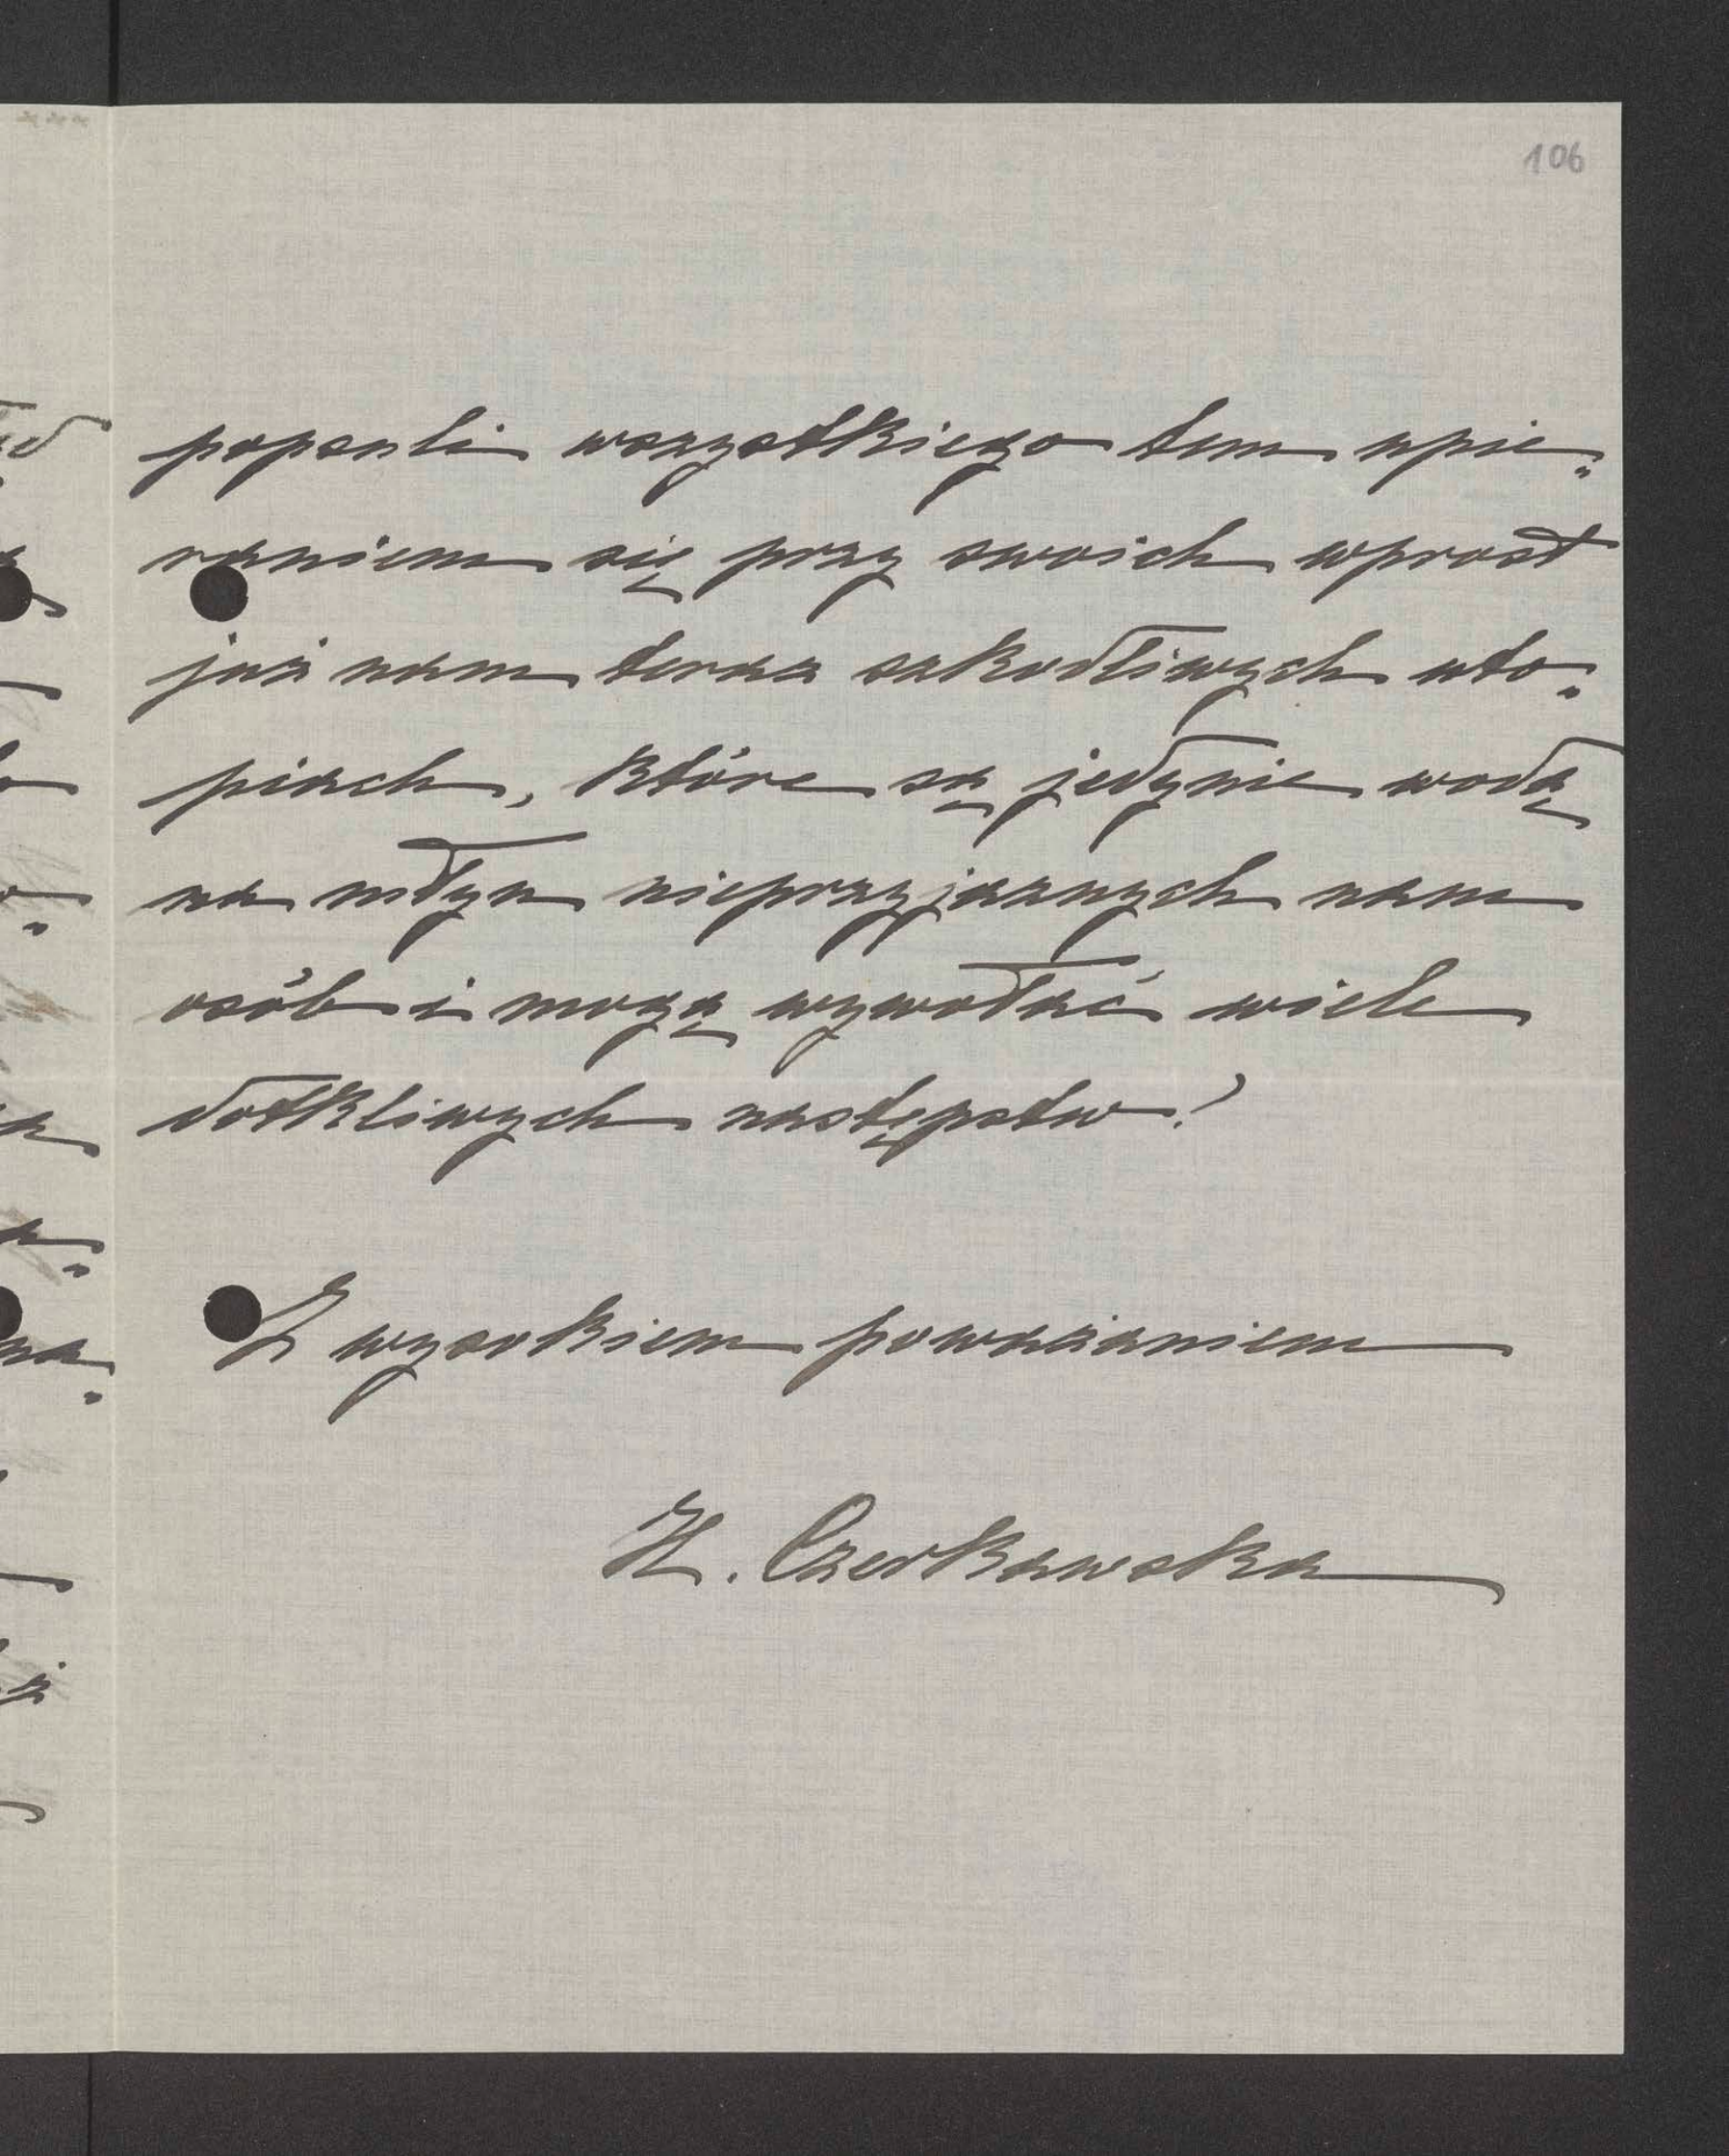 106
popsuli wszystkiego tem upie„
raniem się przy swoich wprost
już nam teraz szkodliwych uto„
piach, które są jedynie wodą
na młyn nieprzyjaznych nam
osób i mogą wywołać wiele
dotkliwych następstw!
Z wysokiem poważaniem
H. Czerkawska